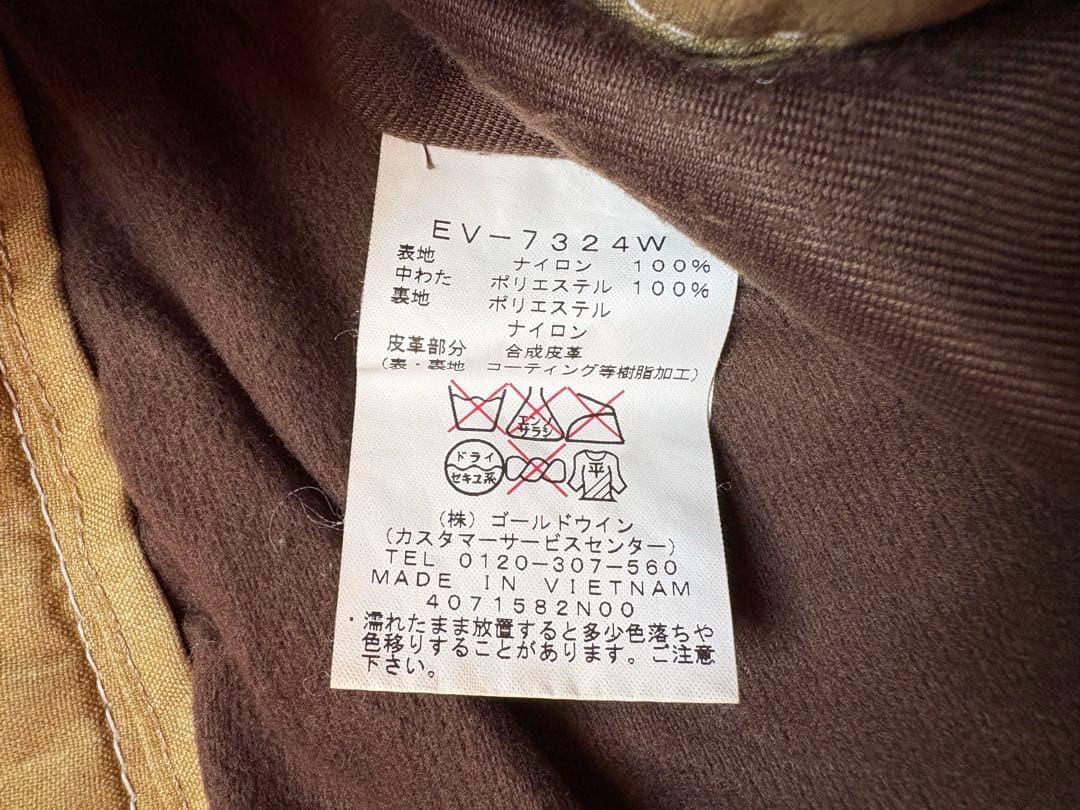 EV-7324W
表地 ナイロン 100%
中わた ポリエステル 100%
裏地 ポリエステル
ナイロン
皮革部分 合成皮革
(表・裏地 コーティング等樹脂加工)
エンソ
サラシ
ドライ
セキユ系
平
(株) ゴールドウイン
(カスタマーサービスセンター)
TEL 0120-307-560
MADE IN VIETNAM
4071582N00
・濡れたまま放置すると多少色落ちや
色移りすることがあります。ご注意
下さい。